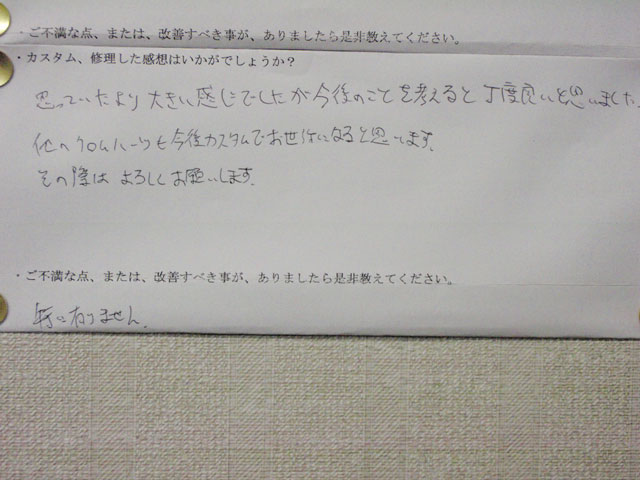 ・ご不満な点、または、改善すべき事が、ありましたら是非教えてください。
・カスタム、修理した感想はいかがでしょうか？
思っていたより大きい感じでしたが今後のことを考えると丁度良いと思いました
他のクロムハーツも今後カスタムでお世話になると思います。
その際はよろしくお願いします。
・ご不満な点、または、改善すべき事が、ありましたら是非教えてください。
特に有りません。